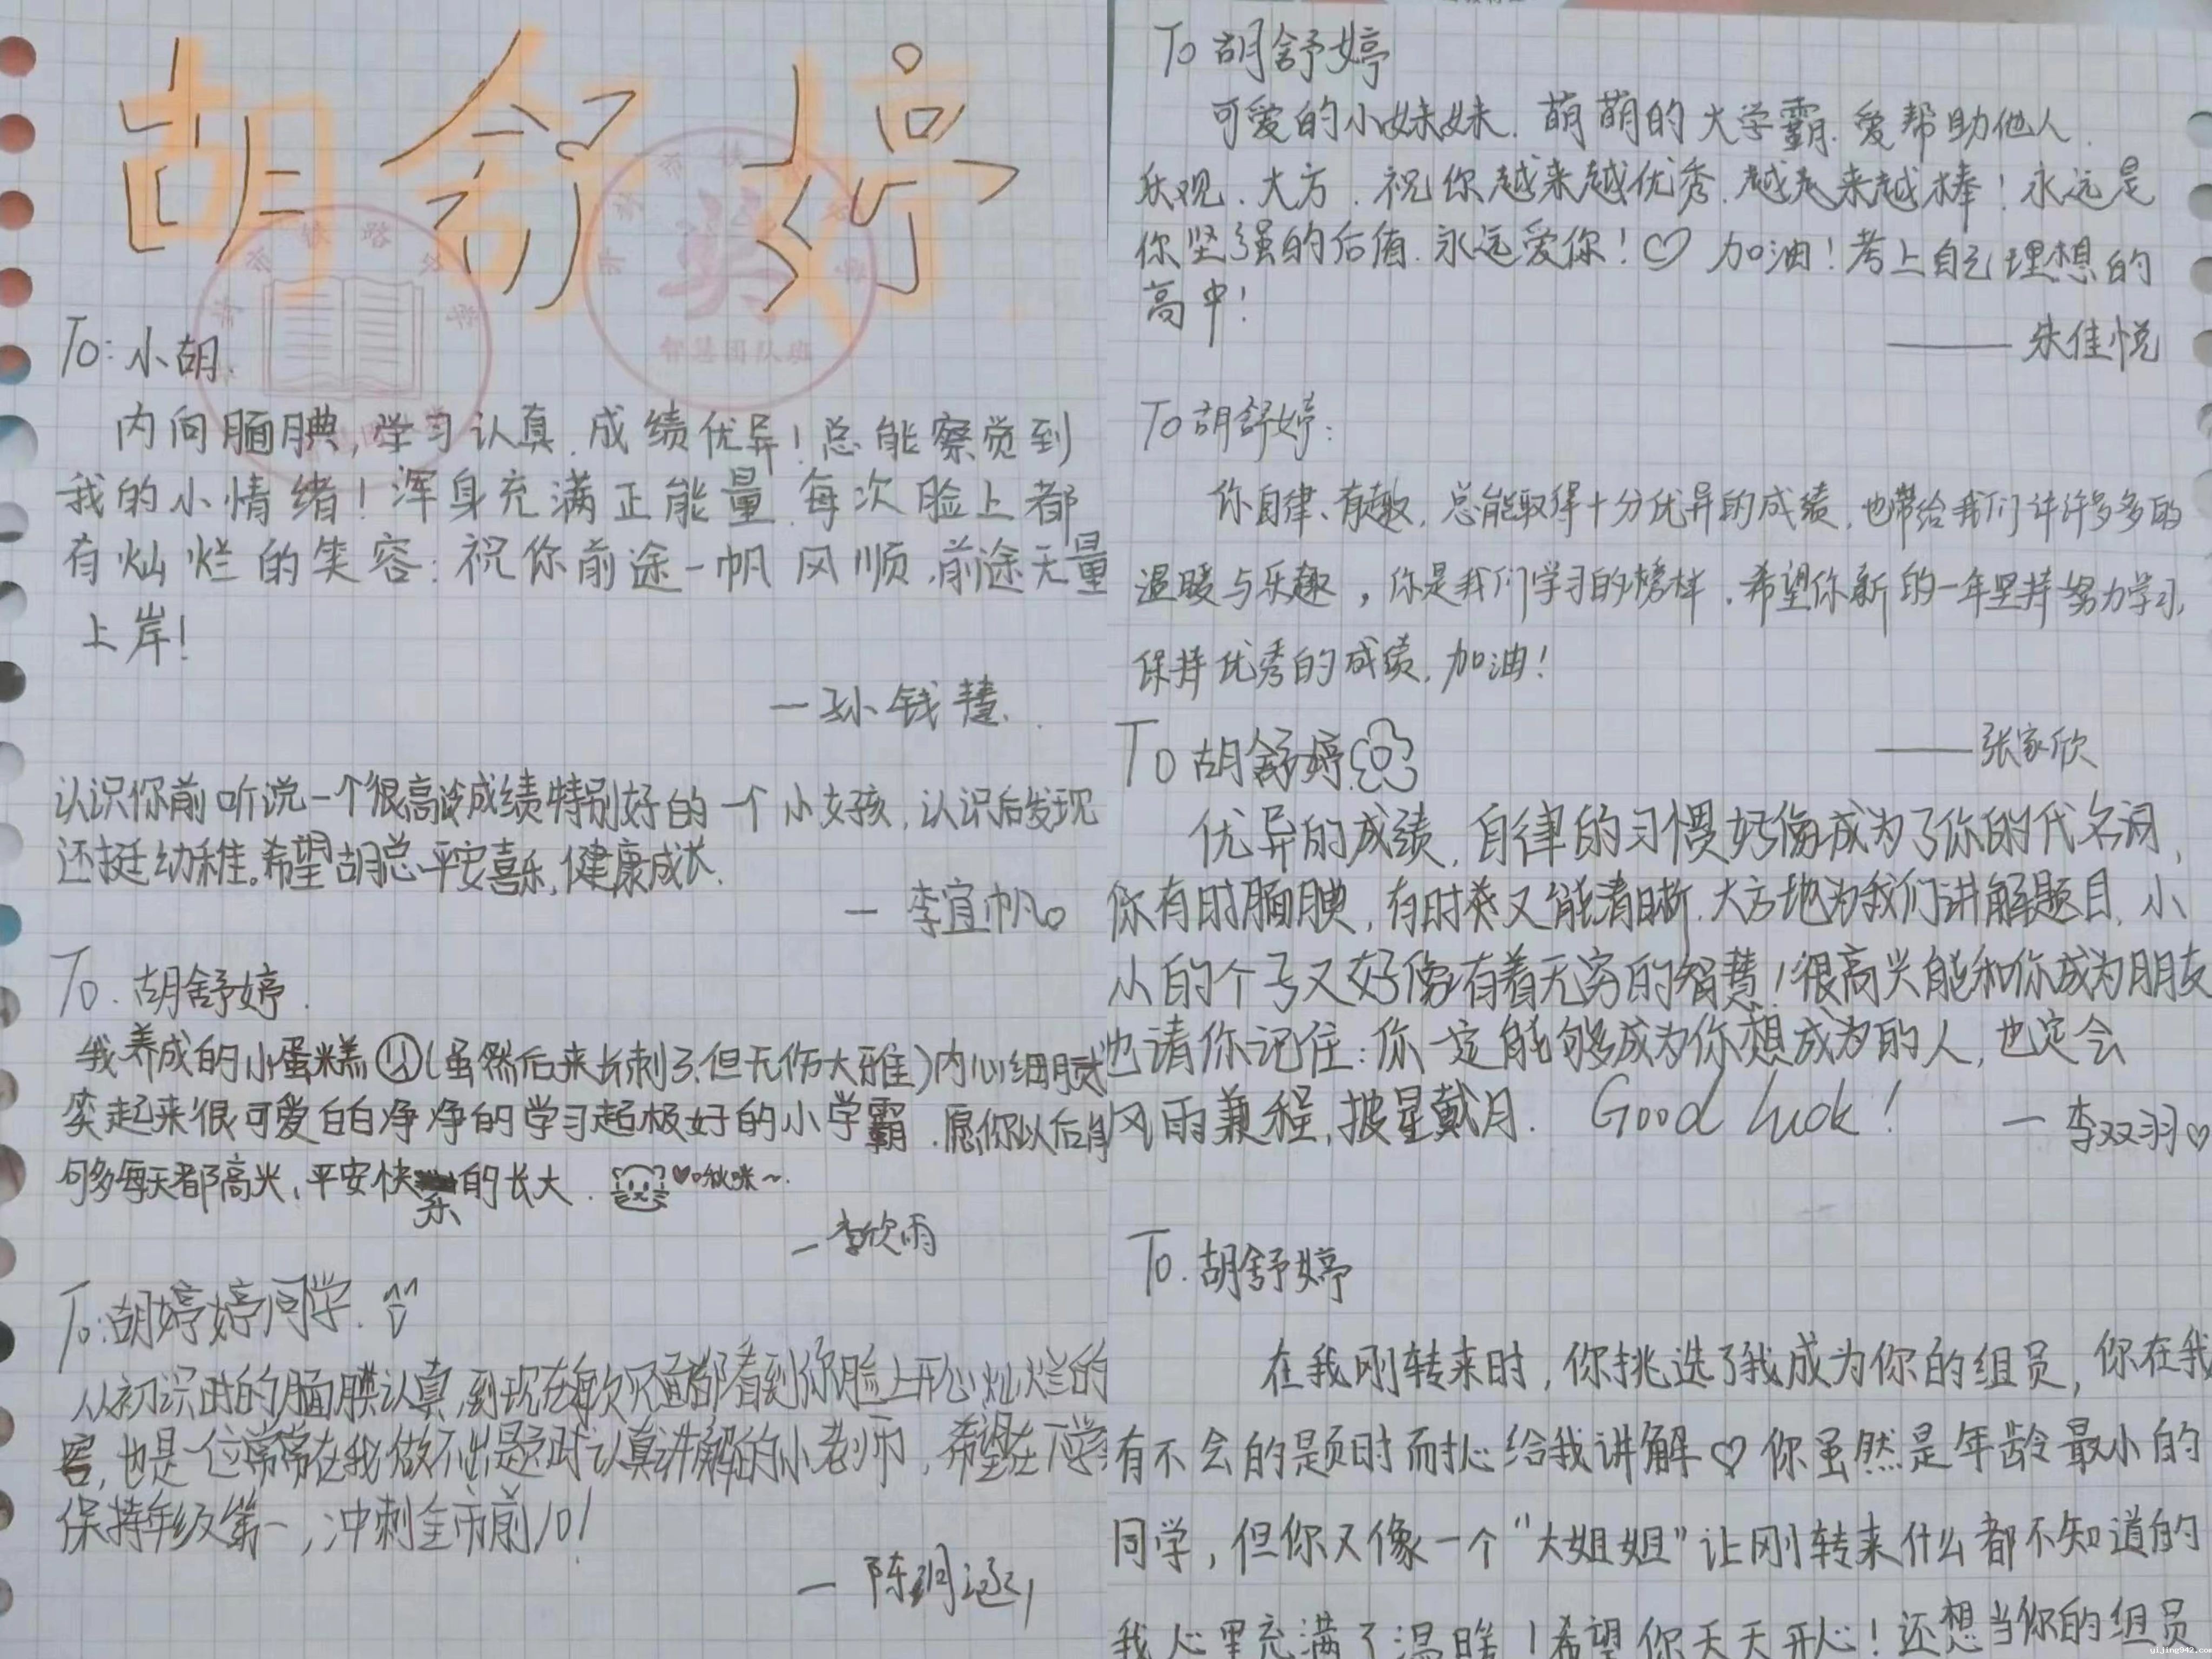 胡舒婷
To: 小胡.
内向腼腆,学习认真.成绩优异!总能察觉到
我的小情绪!浑身充满正能量.每次脸上都
有灿烂的笑容:祝你前途一帆风顺.前途无量
上岸!
—孙钱慧.
认识你前听说一个很高冷成绩特别好的一个小女孩,认识后发现
还挺幼稚。希望胡总平安喜乐,健康成长.
— 李宜帆。
To. 胡舒婷.
我养成的小蛋糕(虽然后来长刺了.但无伤大雅)内心细腻
笑起来很可爱白白净净的学习超极好的小学霸.愿你以后
够每天都高兴,平安快乐的长大. ♥啾咪~.
—李欣雨
To:胡婷婷同学.
从初识时的腼腆认真,到现在每次见面都看到你脸上开心灿烂的
容,也是一位常常在我做不出题时认真讲解的小老师,希望在下学
保持年级第一,冲刺全市前10!
— 陈润涵
智慧团队班
To 胡舒婷
可爱的小妹妹.萌萌的大学霸.爱帮助他人.
乐观.大方.祝你越来越优秀.越来越棒!永远是
你坚强的后盾.永远爱你!♡ 加油!考上自己理想的
高中!
——朱佳悦
To 胡舒婷:
你自律、有趣,总能取得十分优异的成绩,也带给我们许许多多的
温暖与乐趣,你是我们学习的榜样.希望你新的一年坚持努力学习,
保持优秀的成绩,加油!
——张家欣
To 胡舒婷.
优异的成绩,自律的习惯好像成为了你的代名词,
你有时腼腆,有时又能清晰.大方地为我们讲解题目.小
小的个子又好像有着无穷的智慧!很高兴能和你成为朋友
也请你记住:你一定能够成为你想成为的人,也定会
风雨兼程,披星戴月. Good luck!
— 李双羽♡
To. 胡舒婷
在我刚转来时,你挑选了我成为你的组员,你在我
有不会的题时耐心给我讲解♡你虽然是年龄最小的
同学,但你又像一个“大姐姐”让刚转来什么都不知道的
我心里充满了温暖!希望你天天开心!还想当你的组员